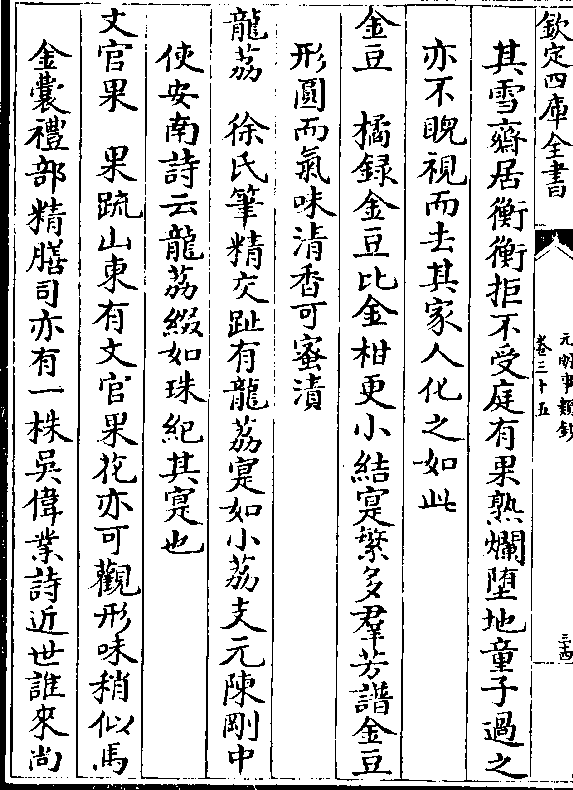 欽定四庫全書
元明事類鈔
卷三十五
三十四
其雪齋居衡衡拒不受庭有果熟爛堕地童子過之
亦不睨視而去其家人化之如此
金豆　橘録金豆比金柑更小結寔繁多羣芳譜金豆
形圓而氣味清香可蜜漬
龍荔　徐氏筆精交趾有龍荔寔如小荔支元陳剛中
使安南詩云龍荔綴如珠紀其寔也
文官果　果疏山東有文官果花亦可觀形味稍似馬
金囊禮部精膳司亦有一株吳偉業詩近世誰來尚